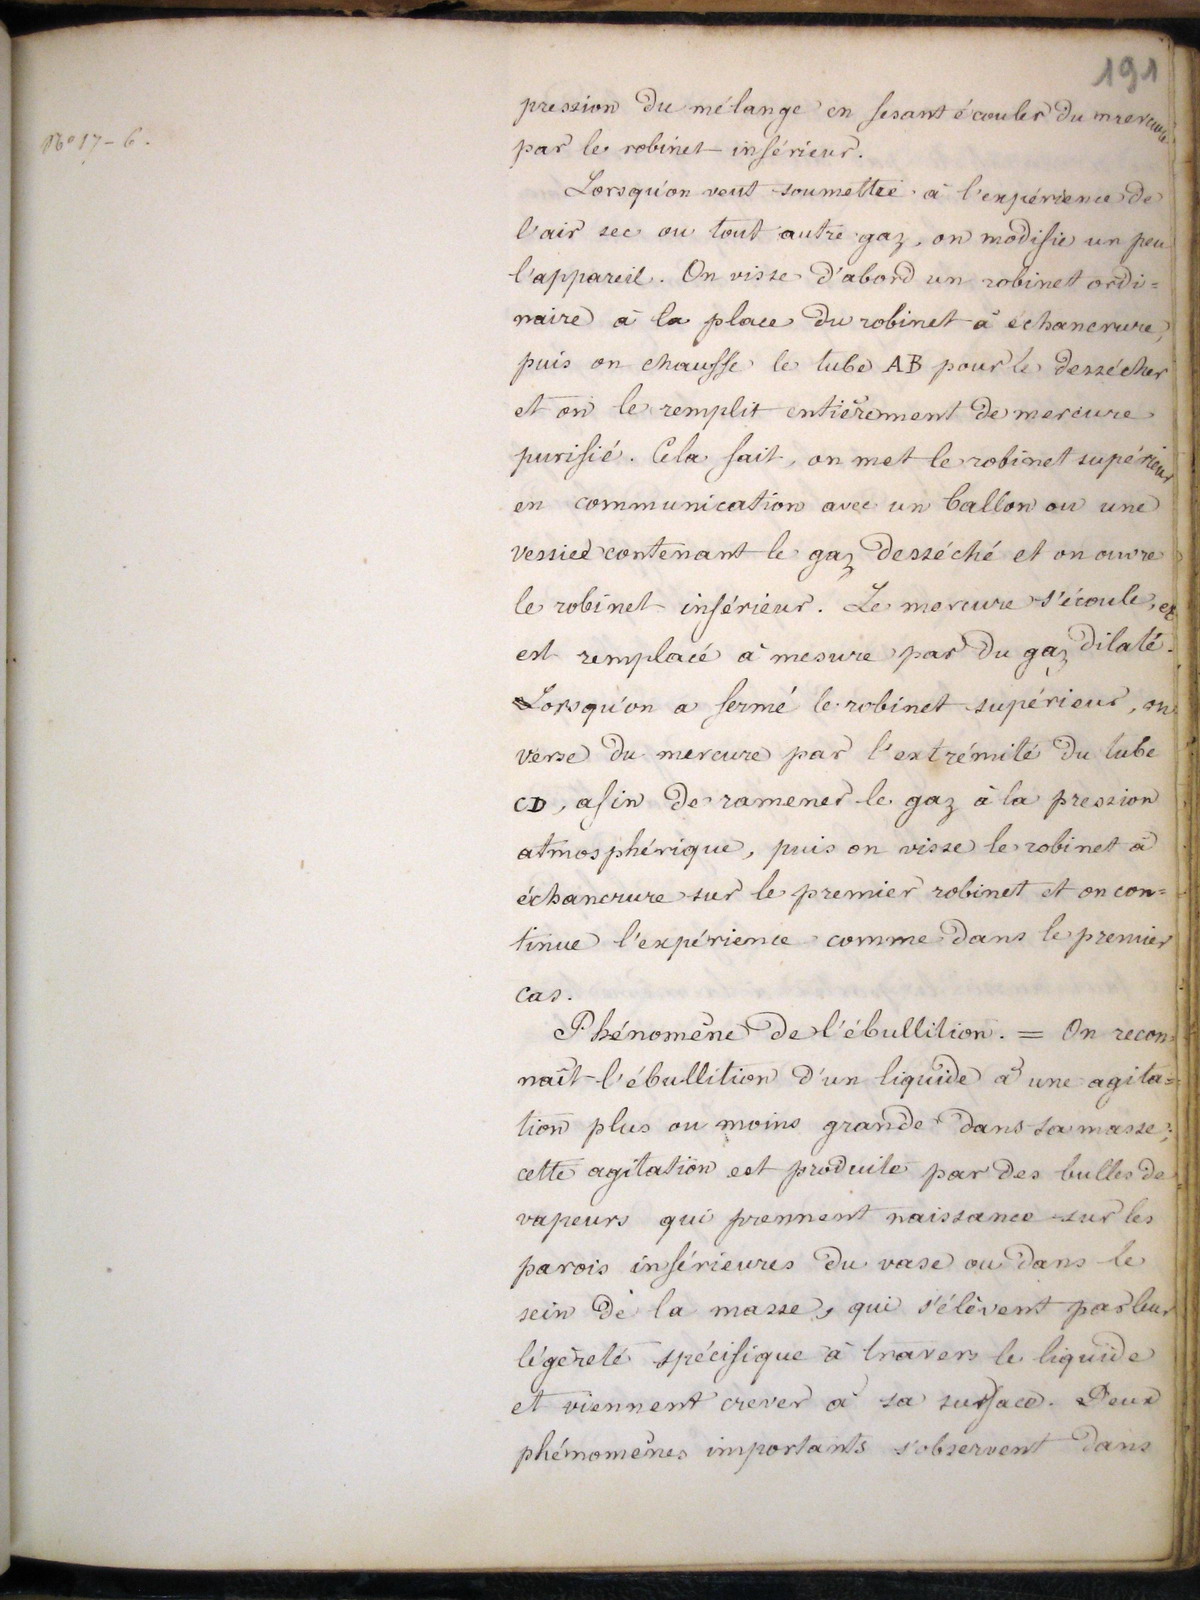 191
No 17-6.
pression du mélange en fesant écouler du mercure
par le robinet inférieur.
Lorsqu'on veut soumettre à l'expérience de
l'air sec ou tout autre gaz, on modifie un peu
l'appareil. On visse d'abord un robinet ordi=
naire à la place du robinet à échancrure,
puis on chauffe le tube AB pour le dessécher
et on le remplit entièrement de mercure
purifié. Cela fait, on met le robinet supérieur
en communication avec un ballon ou une
vessied contenant le gaz desséché et on ouvre
le robinet inférieur. Le mercure s'écoule, et
est remplacé à mesure par du gaz dilaté.
Lorsqu'on a fermé le robinet supérieur, on
verse du mercure par l'extrémité du tube
CD, afin de ramener le gaz à la pression
atmosphérique, puis on visse le robinet à
échancrure sur le premier robinet et on con=
tinue l'expérience comme dans le premier
cas.
Phénomène de l'ébullition. = On recon=
naît l'ébullition d'un liquide à une agita=
tion plus ou moins grande dans sa masse;
cette agitation est produite par des bulles de
vapeurs qui prennent naissance sur les
parois inférieures du vase ou dans le
sein de la masse, qui s'élèvent par leur
légèreté spécifique à travers le liquide
et viennent crever à sa surface. Deux
phénomènes importants s'observent dans